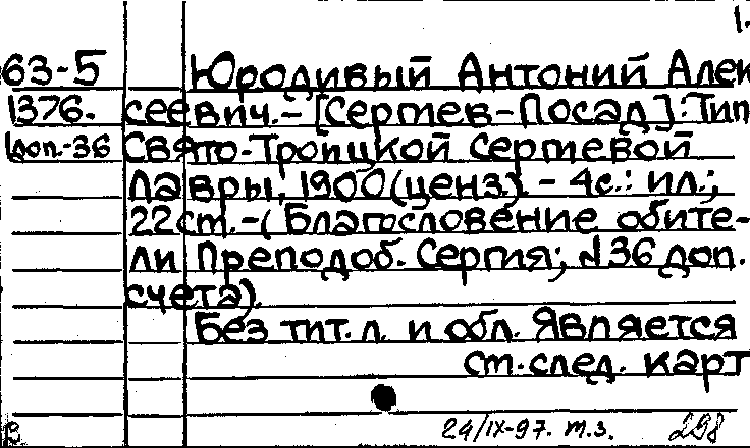 1.
63-5 Юродивый Антоний Алек
1376. сеевич.-[Сергиев-Посад]: Тип.
доп.-36 Свято-Троицкой Сергиевой
Лавры, 1900 (ценз.) - 4с.: ил.;
22 см. - (Благословение обите-
ли Преподоб. Сергия; №36 доп.
счета).
Без тит. л. и обл. Является
см. след. карт
в 24/IX-97. т.з. 298